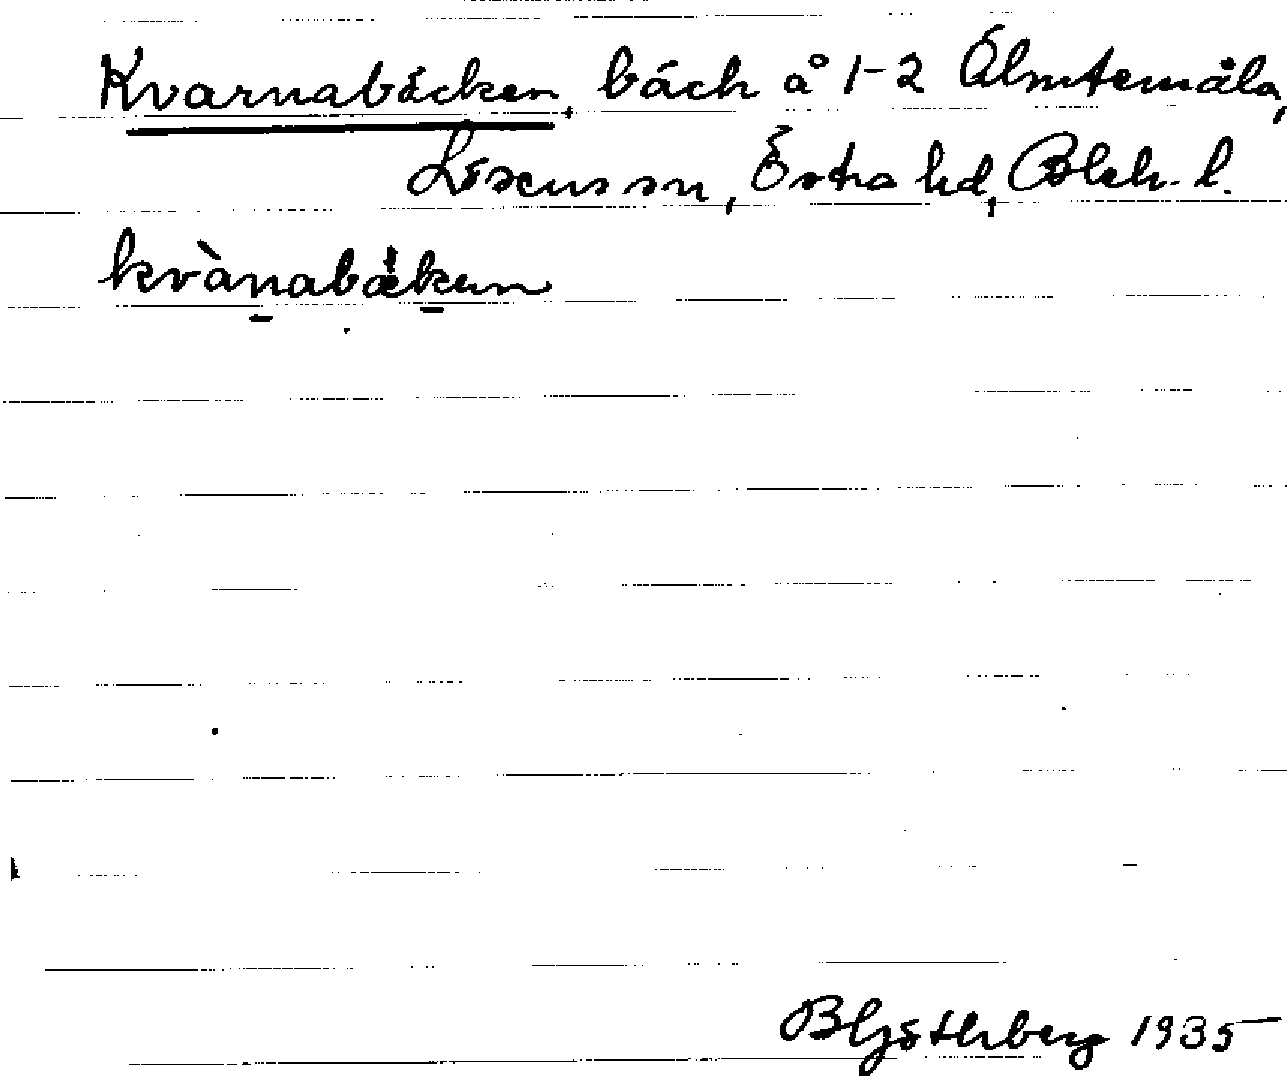 Kvarnabäcken, bäck å 1-2 Älmtemåla,
Lösens sn, Östra hd, Blek. l.
kvànabækən
B Göthberg 1935